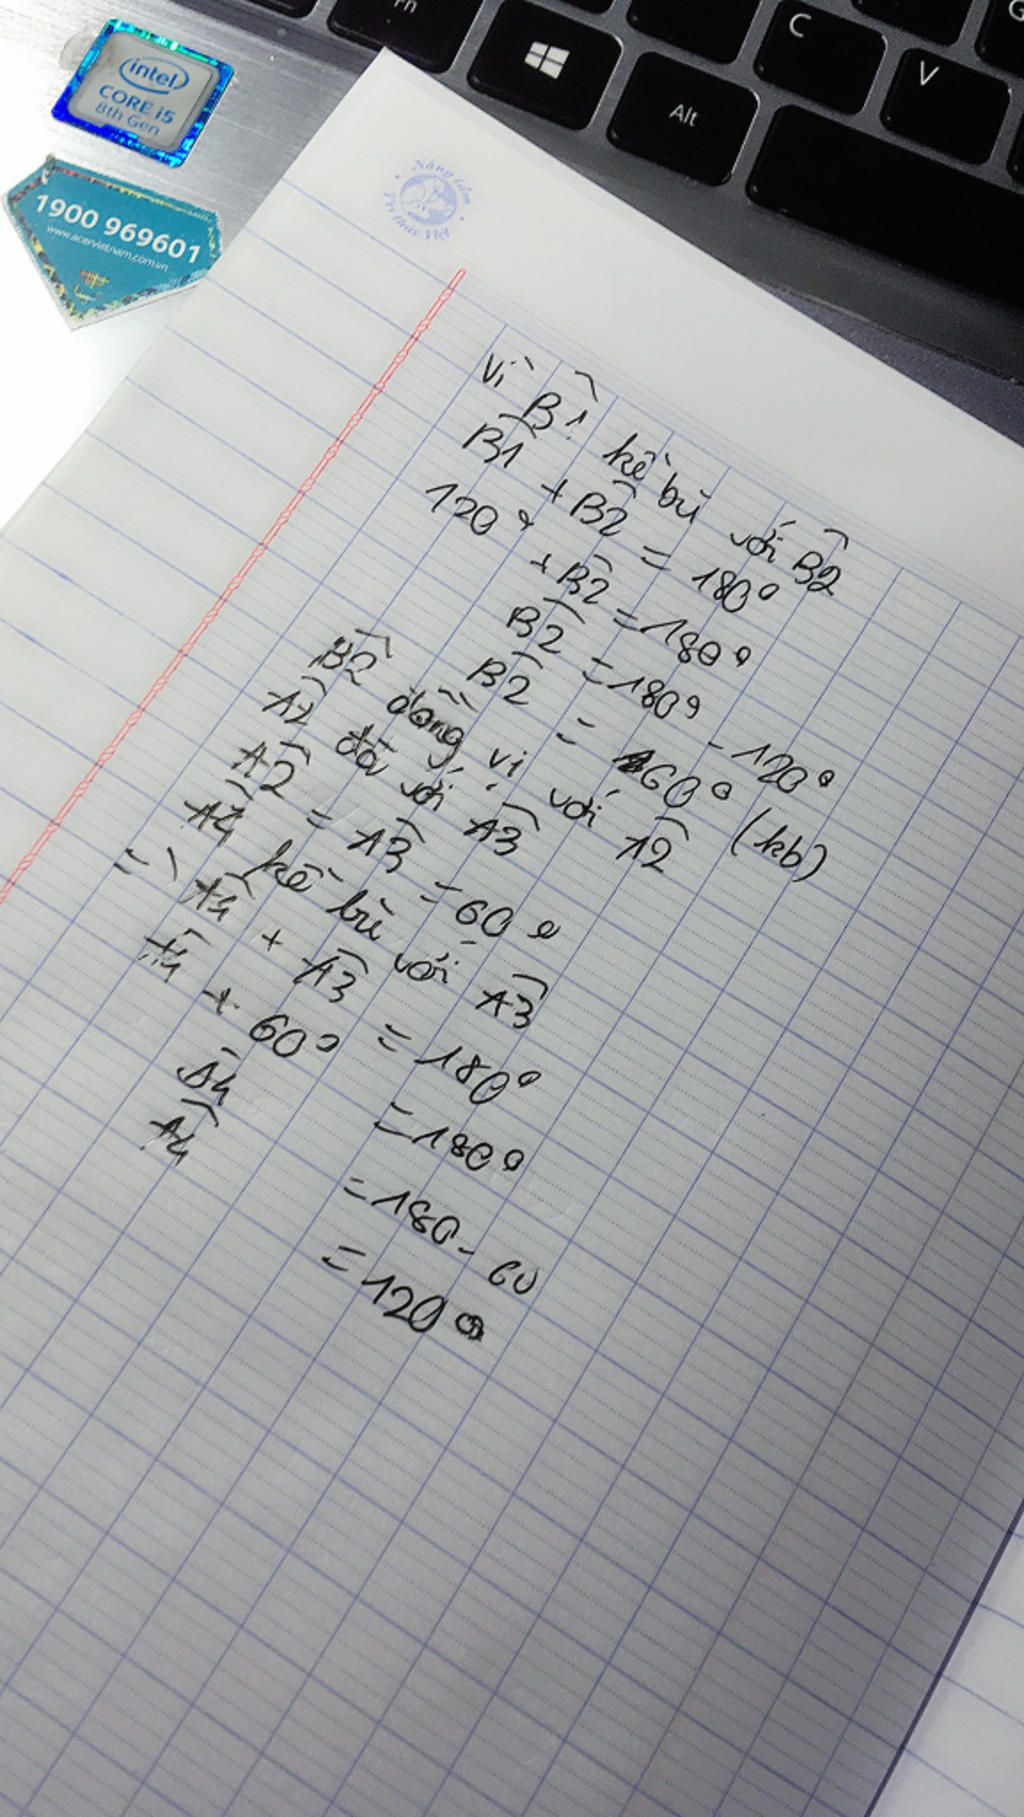 Fn
C
V
Alt
intel
CORE i5
8th Gen
1900 969601
www.acervietnam.com.vn
Nâng tầm
Trí thức Việt
Vì B̂1 kề bù với B̂2
B̂1 + B̂2 = 180°
120° + B̂2 = 180°
B̂2 = 180° - 120°
B̂2 = 60° (kb)
B̂2 đồng vị với Â2
Â2 đđ với Â3
Â2 = Â3 = 60°
Â4 kề bù với Â3
=> Â4 + Â3 = 180°
Â4 + 60° = 180°
Â4 = 180 - 60
Â4 = 120°